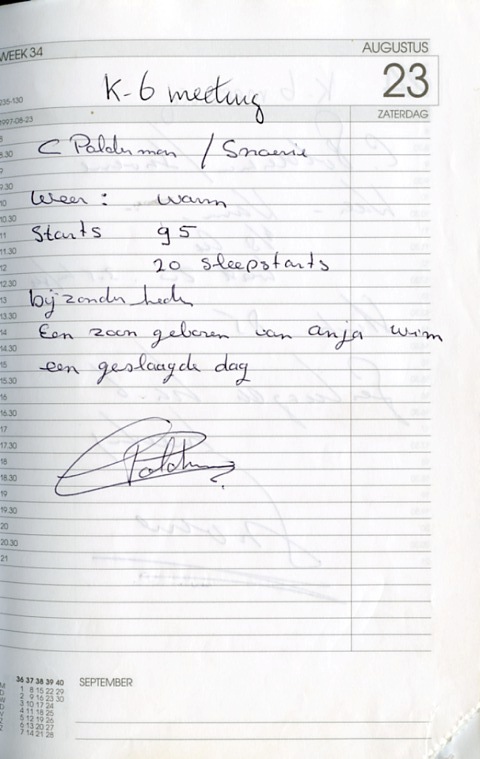 WEEK 34
AUGUSTUS
23
ZATERDAG
235-130
1997-08-23
K-6 meeting
C Palderman / Snoerie
Weer: warm
Starts 95
20 sleepstarts
bijzonderheden
Een zoon geboren van anja wim
een geslaagde dag
8.30
9
9.30
10
10.30
11
11.30
12
12.30
13
13.30
14
14.30
15
15.30
16
16.30
17
17.30
18
18.30
19
19.30
20
20.30
21
36 37 38 39 40
M 1 8 15 22 29
D 2 9 16 23 30
W 3 10 17 24
D 4 11 18 25
V 5 12 19 26
Z 6 13 20 27
Z 7 14 21 28
SEPTEMBER